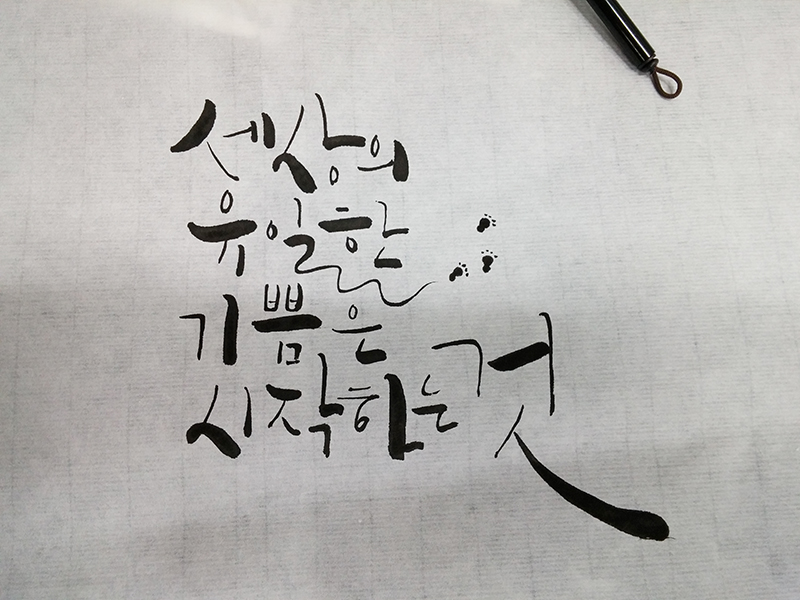 세상의
유일한
기쁨은
시작하는 것